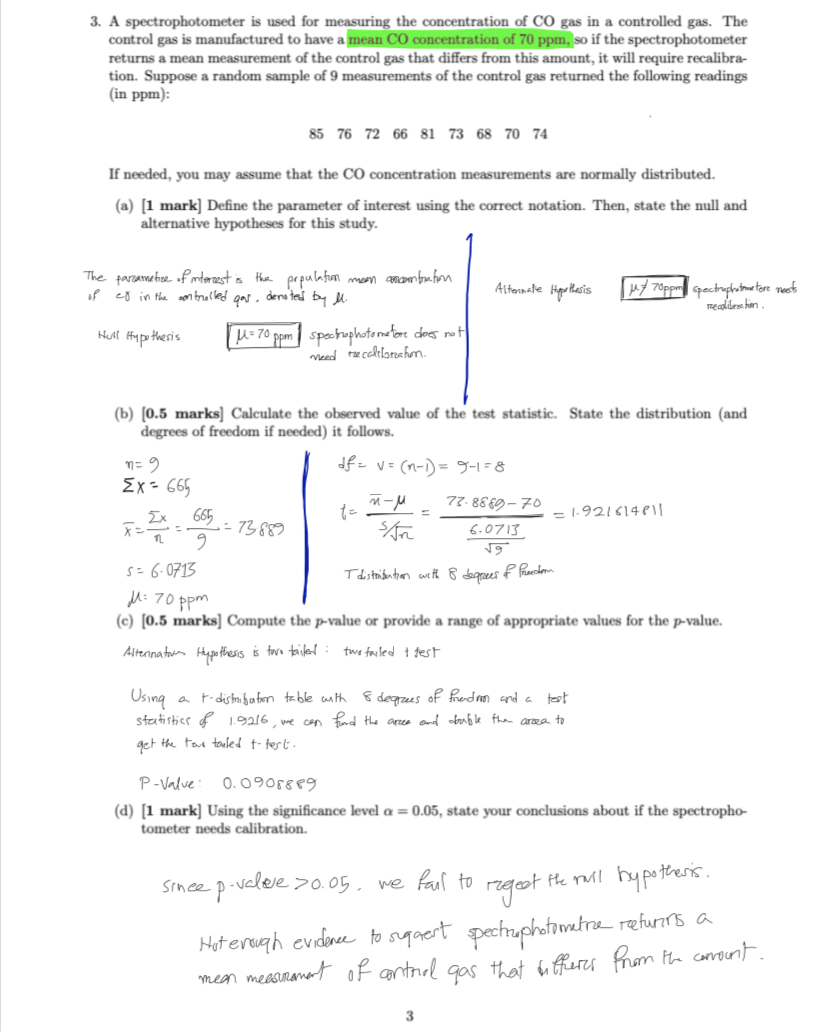 3. A spectrophotometer is used for measuring the concentration of CO gas in a controlled gas. The
control gas is manufactured to have a mean CO concentration of 70 ppm, so if the spectrophotometer
returns a mean measurement of the control gas that differs from this amount, it will require recalibra-
tion. Suppose a random sample of 9 measurements of the control gas returned the following readings
(in ppm):
85 76 72 66 81 73 68 70 74
If needed, you may assume that the CO concentration measurements are normally distributed.
(a) [1 mark] Define the parameter of interest using the correct notation. Then, state the null and
alternative hypotheses for this study.
The parameter of interest is the population mean concentration
of CO in the controlled gas, denoted by μ.
Null Hypothesis μ=70 ppm spectrophotometer does not
need recalibration.
Alternate Hypothesis μ≠70ppm spectrophotometer needs
recalibration.
(b) [0.5 marks] Calculate the observed value of the test statistic. State the distribution (and
degrees of freedom if needed) it follows.
n= 9
Σx = 665
x̄ = Σx/n = 665/9 = 73.889
s = 6.0713
μ= 70 ppm
df = v = (n-1) = 9-1 = 8
t = (x̄-μ)/(s/√n) = (73.8889-70)/(6.0713/√9) = 1.921614811
T distribution with 8 degrees of freedom
(c) [0.5 marks] Compute the p-value or provide a range of appropriate values for the p-value.
Alternative Hypothesis is two tailed : two tailed t test
Using a t-distribution table with 8 degrees of freedom and a test
statistics of 1.9216, we can find the area and double the area to
get the two tailed t-test.
P-Value: 0.0908889
(d) [1 mark] Using the significance level α = 0.05, state your conclusions about if the spectropho-
tometer needs calibration.
Since p-value >0.05, we fail to reject the null hypothesis.
Not enough evidence to suggest spectrophotometer returns a
mean measurement of control gas that differs from the amount.
3